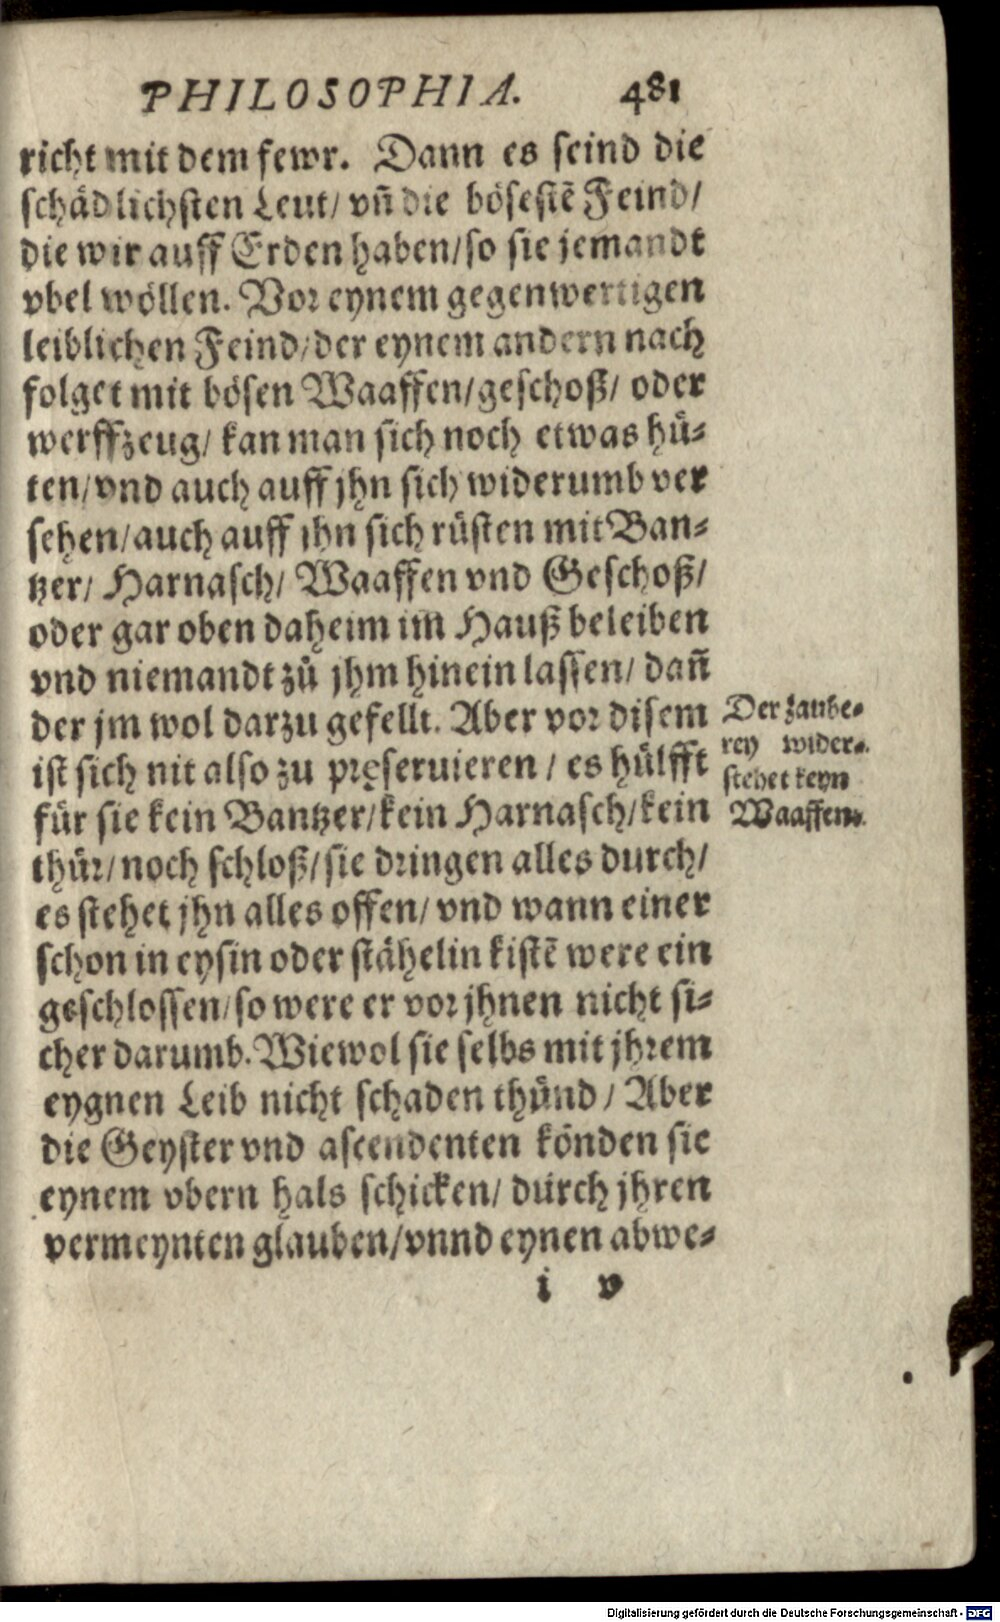 PHILOSOPHIA. 481
richt mit dem fewr. Dann es seind die
schädlichsten Leut/ vñ die bösestē Feind/
die wir auff Erden haben/so sie jemandt
vbel wöllen. Vor eynem gegenwertigen
leiblichen Feind/der eynem andern nach
folget mit bösen Waaffen/geschoß/ oder
werffzeug/ kan man sich noch etwas hü-
ten/vnd auch auff jhn sich widerumb ver
sehen/auch auff ihn sich rüsten mit Ban-
tzer/ Harnasch/ Waaffen vnd Geschoß/
oder gar oben daheim im Hauß beleiben
vnd niemandt zů jhm hinein lassen/ dañ
der jm wol darzu gefellt. Aber vor disem
ist sich nit also zu pręseruieren / es hülfft
für sie kein Bantzer/kein Harnasch/kein
thür/noch schloß/sie dringen alles durch/
es stehet jhn alles offen/ vnd wann einer
schon in eysin oder stähelin kistē were ein
geschlossen/so were er vor jhnen nicht si-
cher darumb. Wiewol sie selbs mit jhrem
eygnen Leib nicht schaden thünd / Aber
die Geyster vnd ascendenten könden sie
eynem vbern hals schicken/ durch jhren
vermeynten glauben/vnnd eynen abwe-
i v
Der zaube-
rey wider-
stehet keyn
Waaffen.
Digitalisierung gefördert durch die Deutsche Forschungsgemeinschaft - DFG